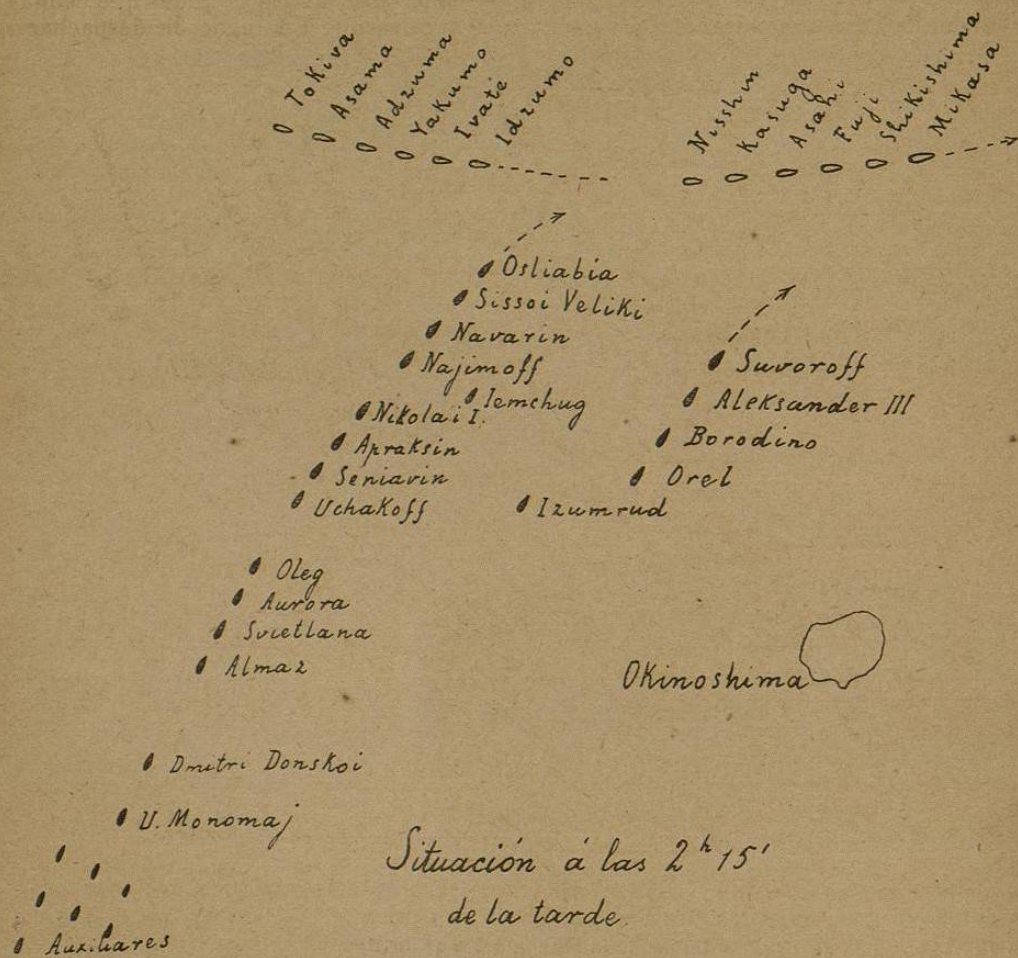 Tokiva
Asama
Adzuma
Yakumo
Ivaté
Idzumo
Nisshin
Kasuga
Asahi
Fuji
Shikishima
Mikasa
Osliabia
Sissoi Veliki
Navarin
Najimoff
Iemchug
Nikolai I.
Apraksin
Seniavin
Uchakoff
Suvoroff
Aleksander III
Borodino
Orel
Izumrud
Oleg
Aurora
Svietlana
Almaz
Okinoshima
Dmitri Donskoi
U. Monomaj
Situación á las 2ʰ 15'
de la tarde.
Auxiliares